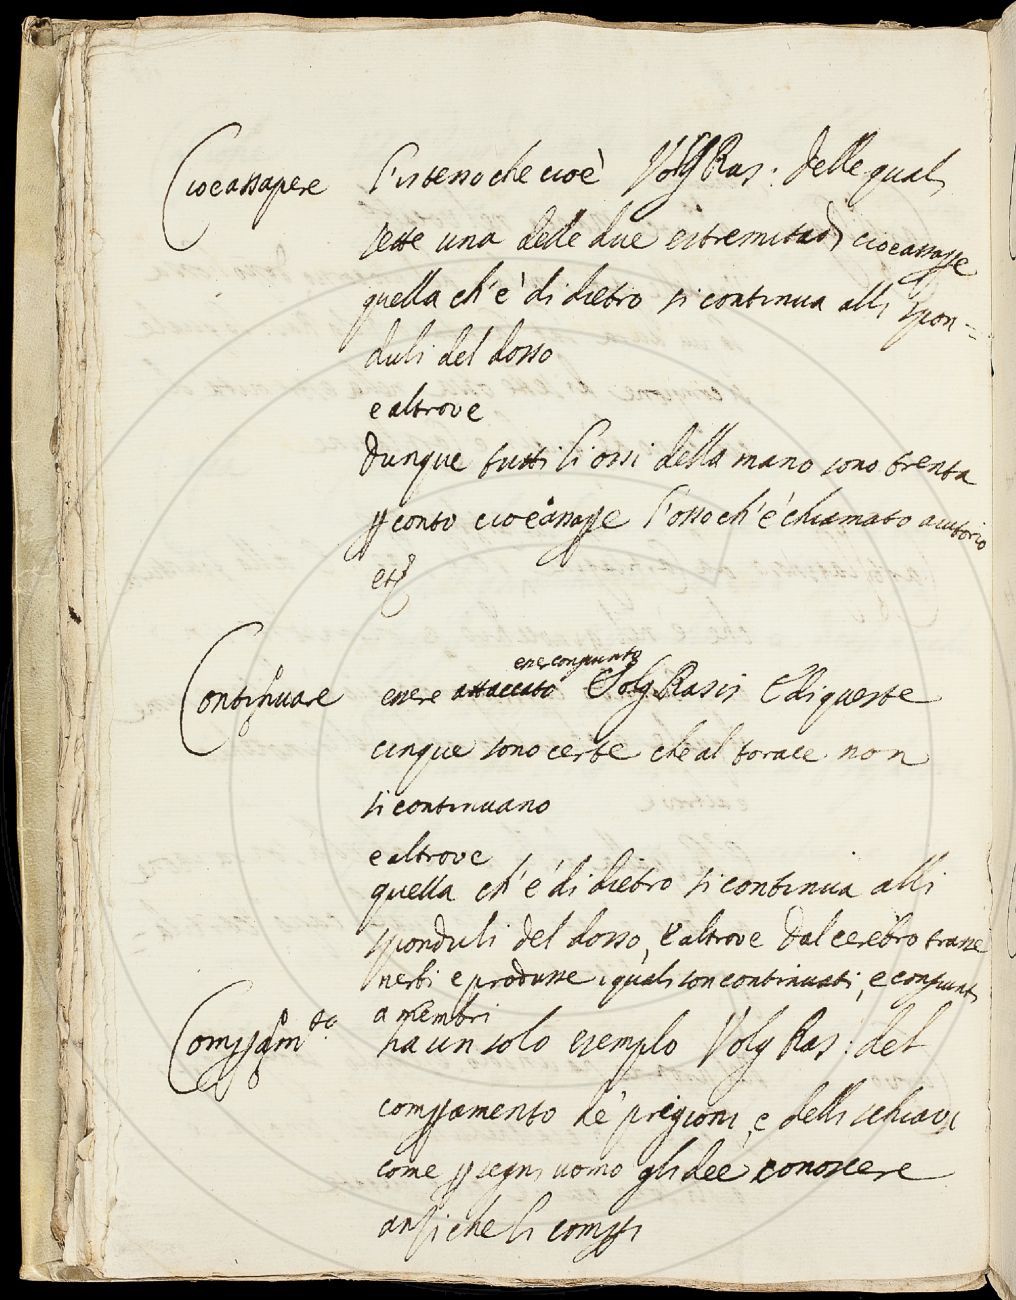 Cioeassapere l'istesso che cioè Volg Ras: delle quali
sette una delle due estremitadi cioeassapere
quella ch'è di dietro si continua alli spon=
duli del dosso
e altrove
Dunque tutti li ossi della mano sono trenta
p conto cioèassape l'osso ch'è chiamato aiutorio
etc
Continuare essere attaccato esser congiunto Volg Rasis E di queste
cinque sono certe che al torace non
si continuano
e altrove
quella ch'è di dietro si continua alli
sponduli del dosso, e altrove Dal cerebro trasse
nerbi e produsse i quali son continuati, e congiunti
a membri
Compam.to ha un solo esempio Volg Ras: del
compamento de' prigioni, e delli schiavi
come p segni uomo gli dee conoscere
anzi che li compi